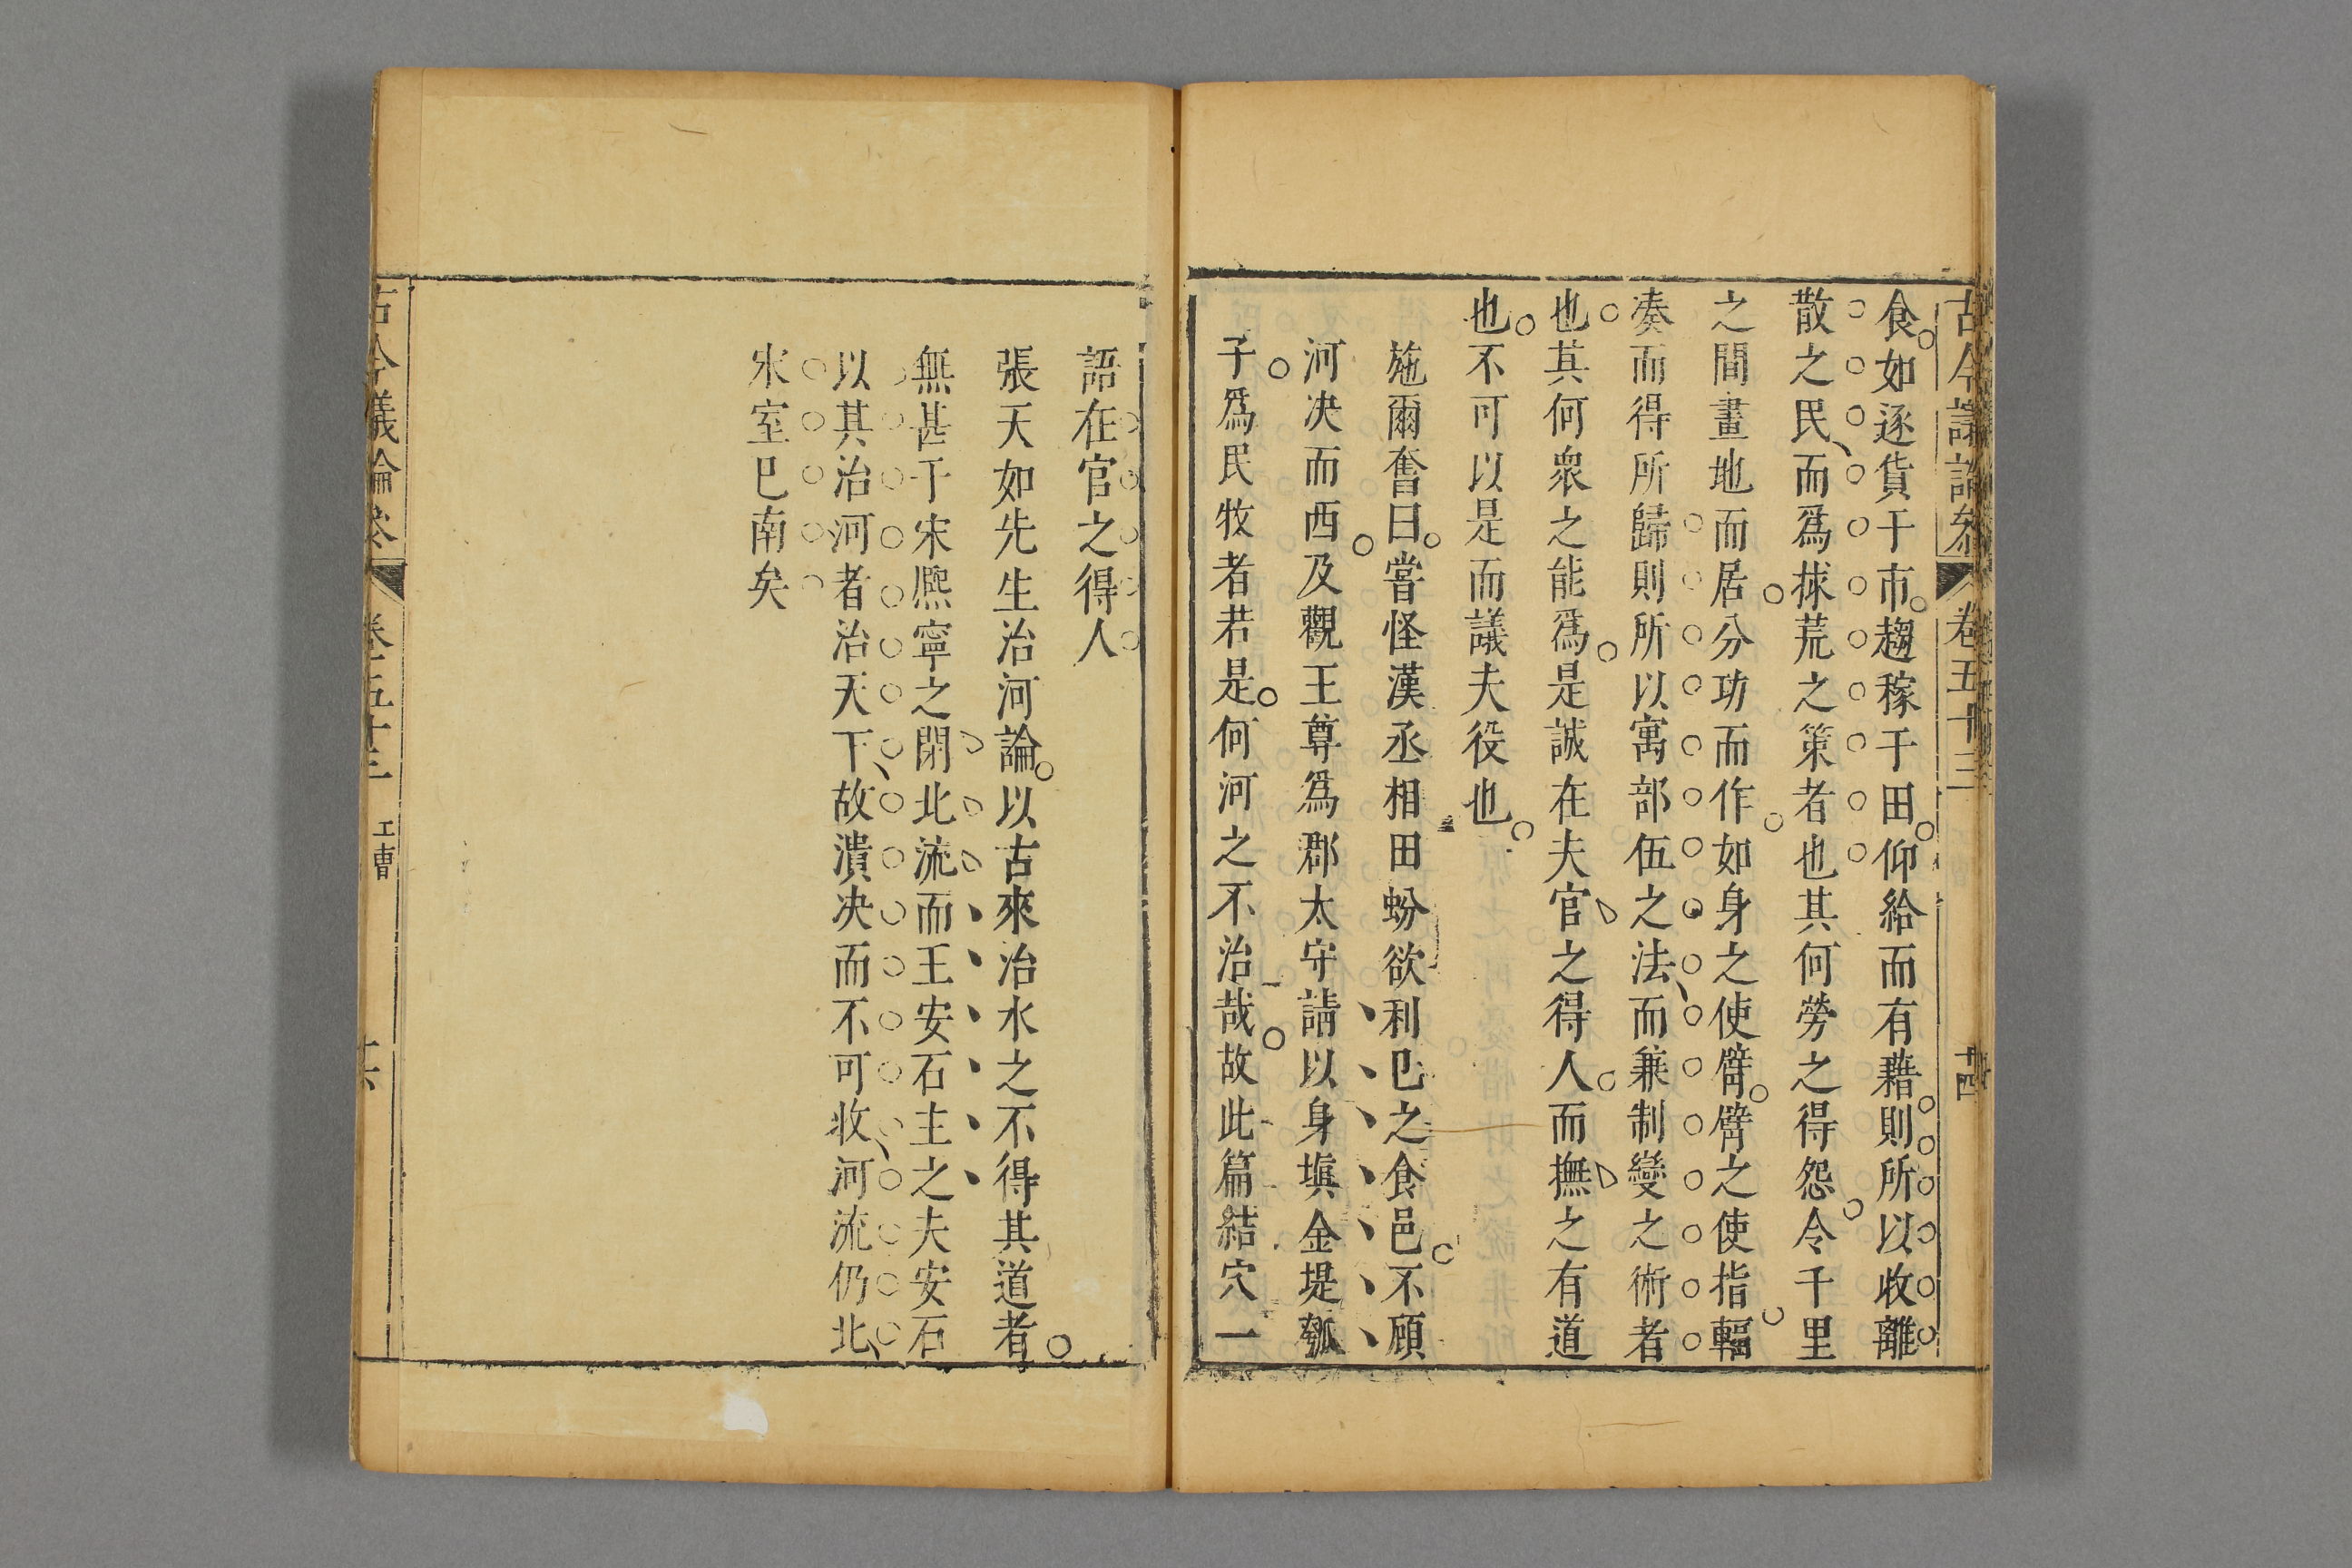 古今議論參 卷五十三 十四
食如逐貨于市趨稼于田仰給而有藉則所以收離
散之民而爲捄荒之策者也其何勞之得怨令千里
之間畫地而居分功而作如身之使臂臂之使指輻
奏而得所歸則所以寓部伍之法而兼制變之術者
也其何衆之能爲是誠在夫官之得人而撫之有道
也不可以是而議夫役也
施爾奮曰嘗怪漢丞相田蚡欲利巳之食邑不顧
河决而西及觀王尊爲郡太守請以身塡金堤瓠
子爲民牧者若是何河之不治哉故此篇結穴一
語在官之得人
張天如先生治河論以古來治水之不得其道者
無甚于宋熈寧之閉北流而王安石主之夫安石
以其治河者治天下故潰决而不可收河流仍北
氷室巳南矣
古今議論參 卷五十三 工曹